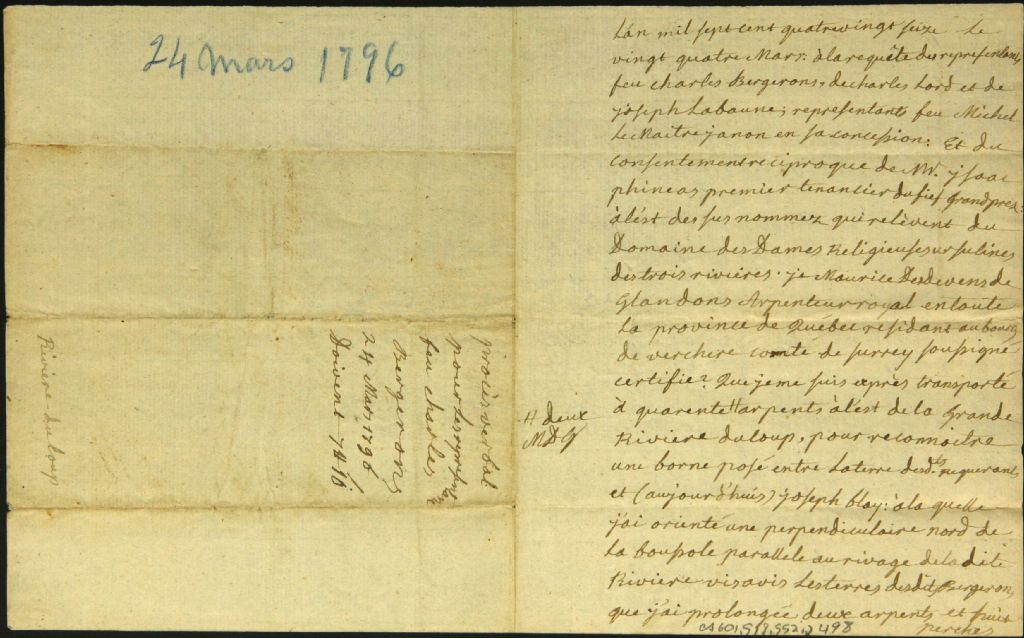 24 Mars 1796
Rivière du loup
procès verbal
pour les représentans
feu charles
Bergerons
24 Mars 1796
Doivent 7#
# deux
MDG
Lán mil sept cent quatrevingt seize Le
vingt quatre Mars. à la requête des représentans
feu charles Bergerons, de charles Lord et de
joseph Labaune; représentants feu Michel
Le Maître janon en sa concession: Et du
consentement réciproque de Mr. jsaac
phineas premier tenancier du fief Grandprez:
à lést des sus nommez qui relèvent du
Domaine des Dames Religieuses ursulines
des trois rivières. je Maurice Desdevens de
Glandons Arpenteur royal en toute
La province de Québec résidant au bourg
de verchere comté de surrey soussigné
certifie? Que je me suis exprès transporté
à quarente # arpents à lést de la Grande
Rivière du loup, pour reconnoître
une borne posé entre La terre desdts. requerants
et (aujourd'huis) joseph blay: à la quelle
j'ai orienté une perpendiculaire nord de
La boussole parallele au rivage de la dite
Rivière vis avis Les terres desdits Bergerons
que j'ai prolongée deux arpents et huit
perches
498